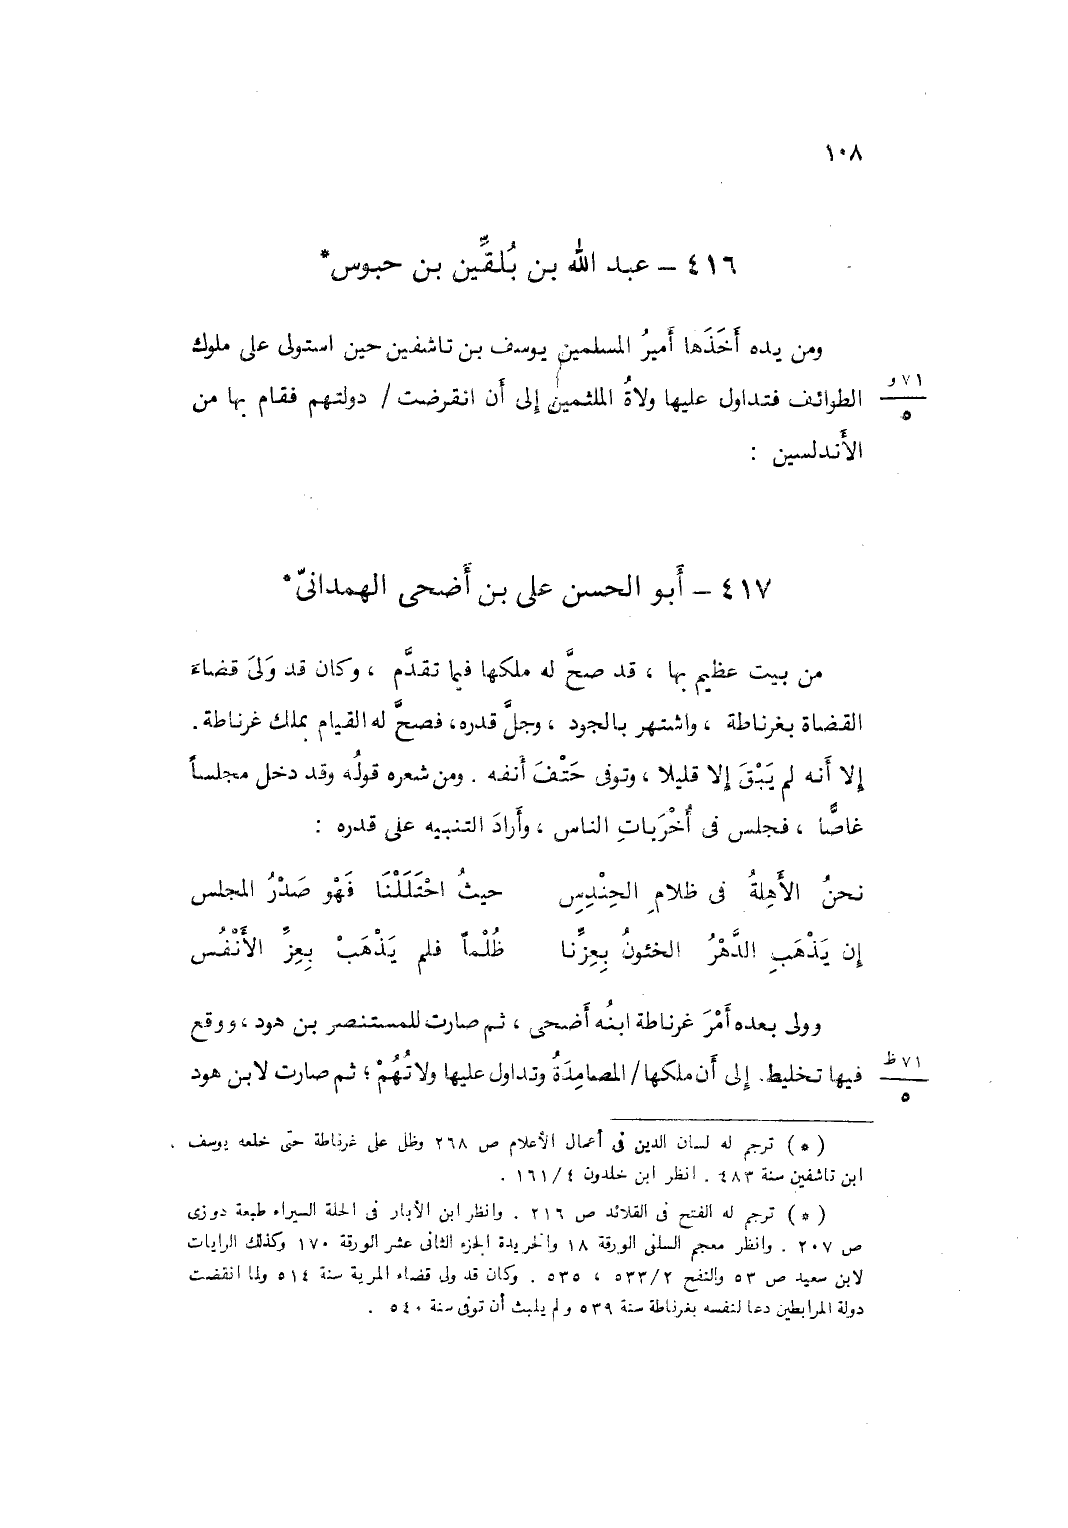 ١٠٨
٤١٦ – عبد الله بن بُلقِّين بن حبوس*
ومن يده أَخَذَها أَميرُ المسلمين يوسف بن تاشفين حين استولى على ملوك
الطوائف فتداول عليها ولاةُ الملثمين إلى أن انقرضت / دولتهم فقام بها من
٧١ و
٥
الأندلسين :
٤١٧ – أَبو الحسن على بن أَضحى الهمدانىّ*
من بيت عظيم بها ، قد صحَّ له ملكها فيما تقدَّم ، وكان قد وَلىَ قضاءَ
القضاة بغرناطة ، واشتهر بالجود ، وجلَّ قدره، فصحَّ له القيام بملك غرناطة .
إلا أَنه لم يَبْقَ إلا قليلا ، وتوفى حَتْفَ أَنفه . ومن شعره قولُه وقد دخل مجلساً
غاصًّا ، فجلس فى أُخْرَياتِ الناس ، وأَرادَ التنبيه على قدره :
نحنُ الأَهِلةُ فى ظلامِ الحِنْدِسِ حيثُ احْتَلَلْنَا فَهْو صَدْرُ المجلس
إن يَذْهَبِ الدَّهْرُ الخئونُ بِعِزِّنا ظُلْماً فلم يَذْهَبْ بِعِزِّ الأَنْفُس
وولى بعده أَمْرَ غرناطة ابنُه أَضحى ، ثم صارت للمستنصر بن هود ، ووقع
فيها تخليط. إلى أَن ملكها/ المصامِدَةُ وتداول عليها ولاتُهُمْ ؛ ثم صارت لابن هود
٧١ ظ
٥
(*) ترجم له لسان الدين فى أعمال الأعلام ص ٢٦٨ وظل على غرناطة حتى خلعه يوسف
ابن تاشفين سنة ٤٨٣ . انظر ابن خلدون ٤/١٦١ .
(*) ترجم له الفتح فى القلائد ص ٢١٦ . وانظر ابن الأبار فى الحلة السيراء طبعة دوزى
ص ٢٠٧ . وانظر معجم السلفى الورقة ١٨ والخريدة الجزء الثانى عشر الورقة ١٧٠ وكذلك الرايات
لابن سعيد ص ٥٣ والنفح ٥٣٣/٢ ، ٥٣٥ . وكان قد ولى قضاء المرية سنة ٥١٤ ولما انقضت
دولة المرابطين دعا لنفسه بغرناطة سنة ٥٣٩ ولم يلبث أن توفى سنة ٥٤٠ .